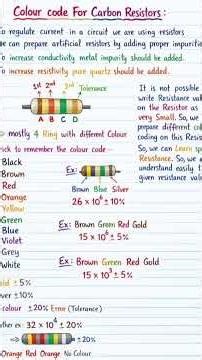 Colour code For Carbon Resistors :
To regulate current in a circuit we are using resistors
we can prepare artificial resistors by adding proper impurities
To increase conductivity metal impurity should be added.
To increase resistivity pure quartz should be added.
1st 2nd 3rd Tolerance
A B C D
It is not possible
write Resistance val
on the Resistor as
very Small. So, we
prepare different col
coding on this Resist
So, we can Learn sp
Resistance. So, we a
understand easily t
given resistance val
mostly 4 Ring with different Colour
rick to remember the colour code
Black
Brown
Red
Orange
Yellow
Green
Blue
Violet
Grey
White
old ± 5%
ver ± 10%
colour ± 20% Error (Tolerance)
Ex:
Brown Blue Silver
26 × 10⁶ ± 10%
Ex: Brown Green Red Gold
15 × 10⁶ ± 5%
Ex: Brown Green Red Gold
15 × 10³ ± 5%
ther ex: 32 × 10⁴ ± 20%
± 20%
Orange Red Orange No Colour